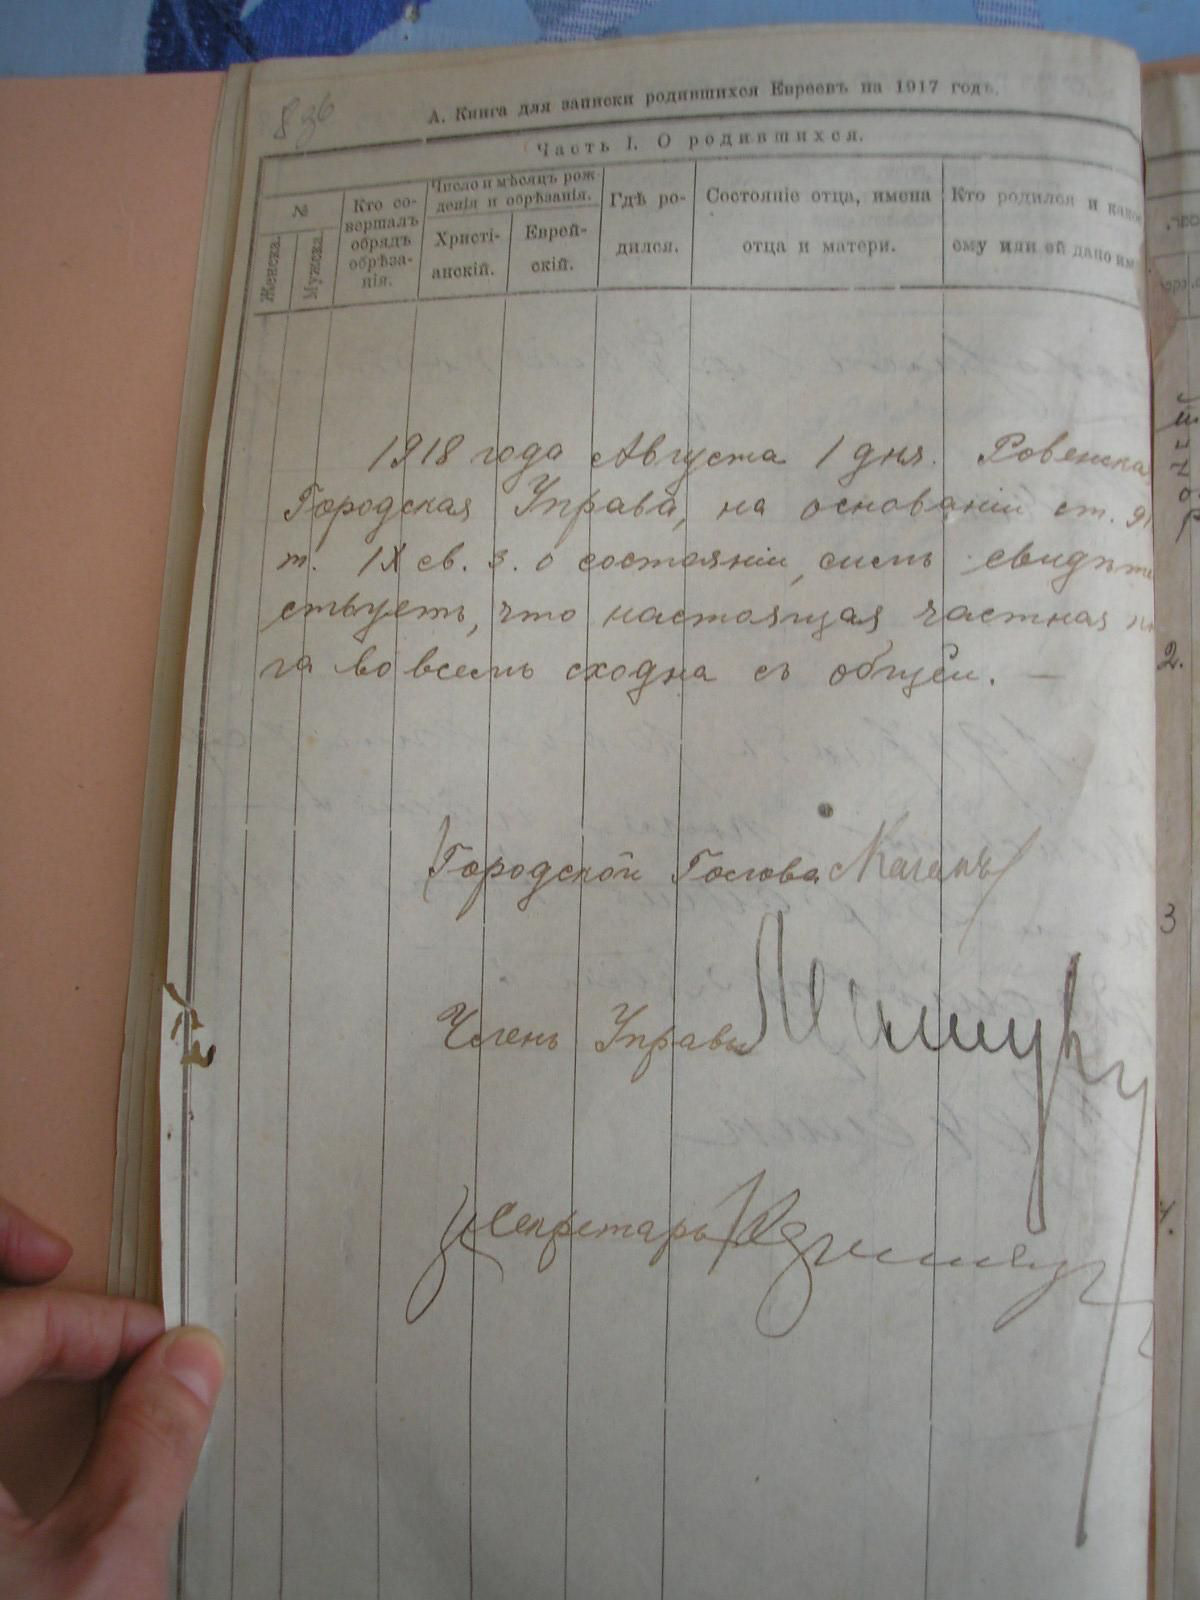 836
А. Книга для записки родившихся Евреевъ на 1917 годъ.
Часть I. О родившихся.
№
Женска.
Мужска.
Кто со-
вершалъ
обрядъ
обрѣза-
нія.
Число и мѣсяцъ рож-
денія и обрѣзанія.
Христі-
анскій.
Еврей-
скій.
Гдѣ ро-
дился.
Состояніе отца, имена
отца и матери.
Кто родился и како
ему или ей дано им
1918 года Августа 1 дня. Ровенская
Городская Управа, на основаніи ст.
т. IX св. з. о состояніи, симъ свидѣте
ствуетъ, что настоящая частная кн
га во всемъ сходна съ общей. —
Городской Голова
Членъ Управы
Секретарь
2.
3
4.